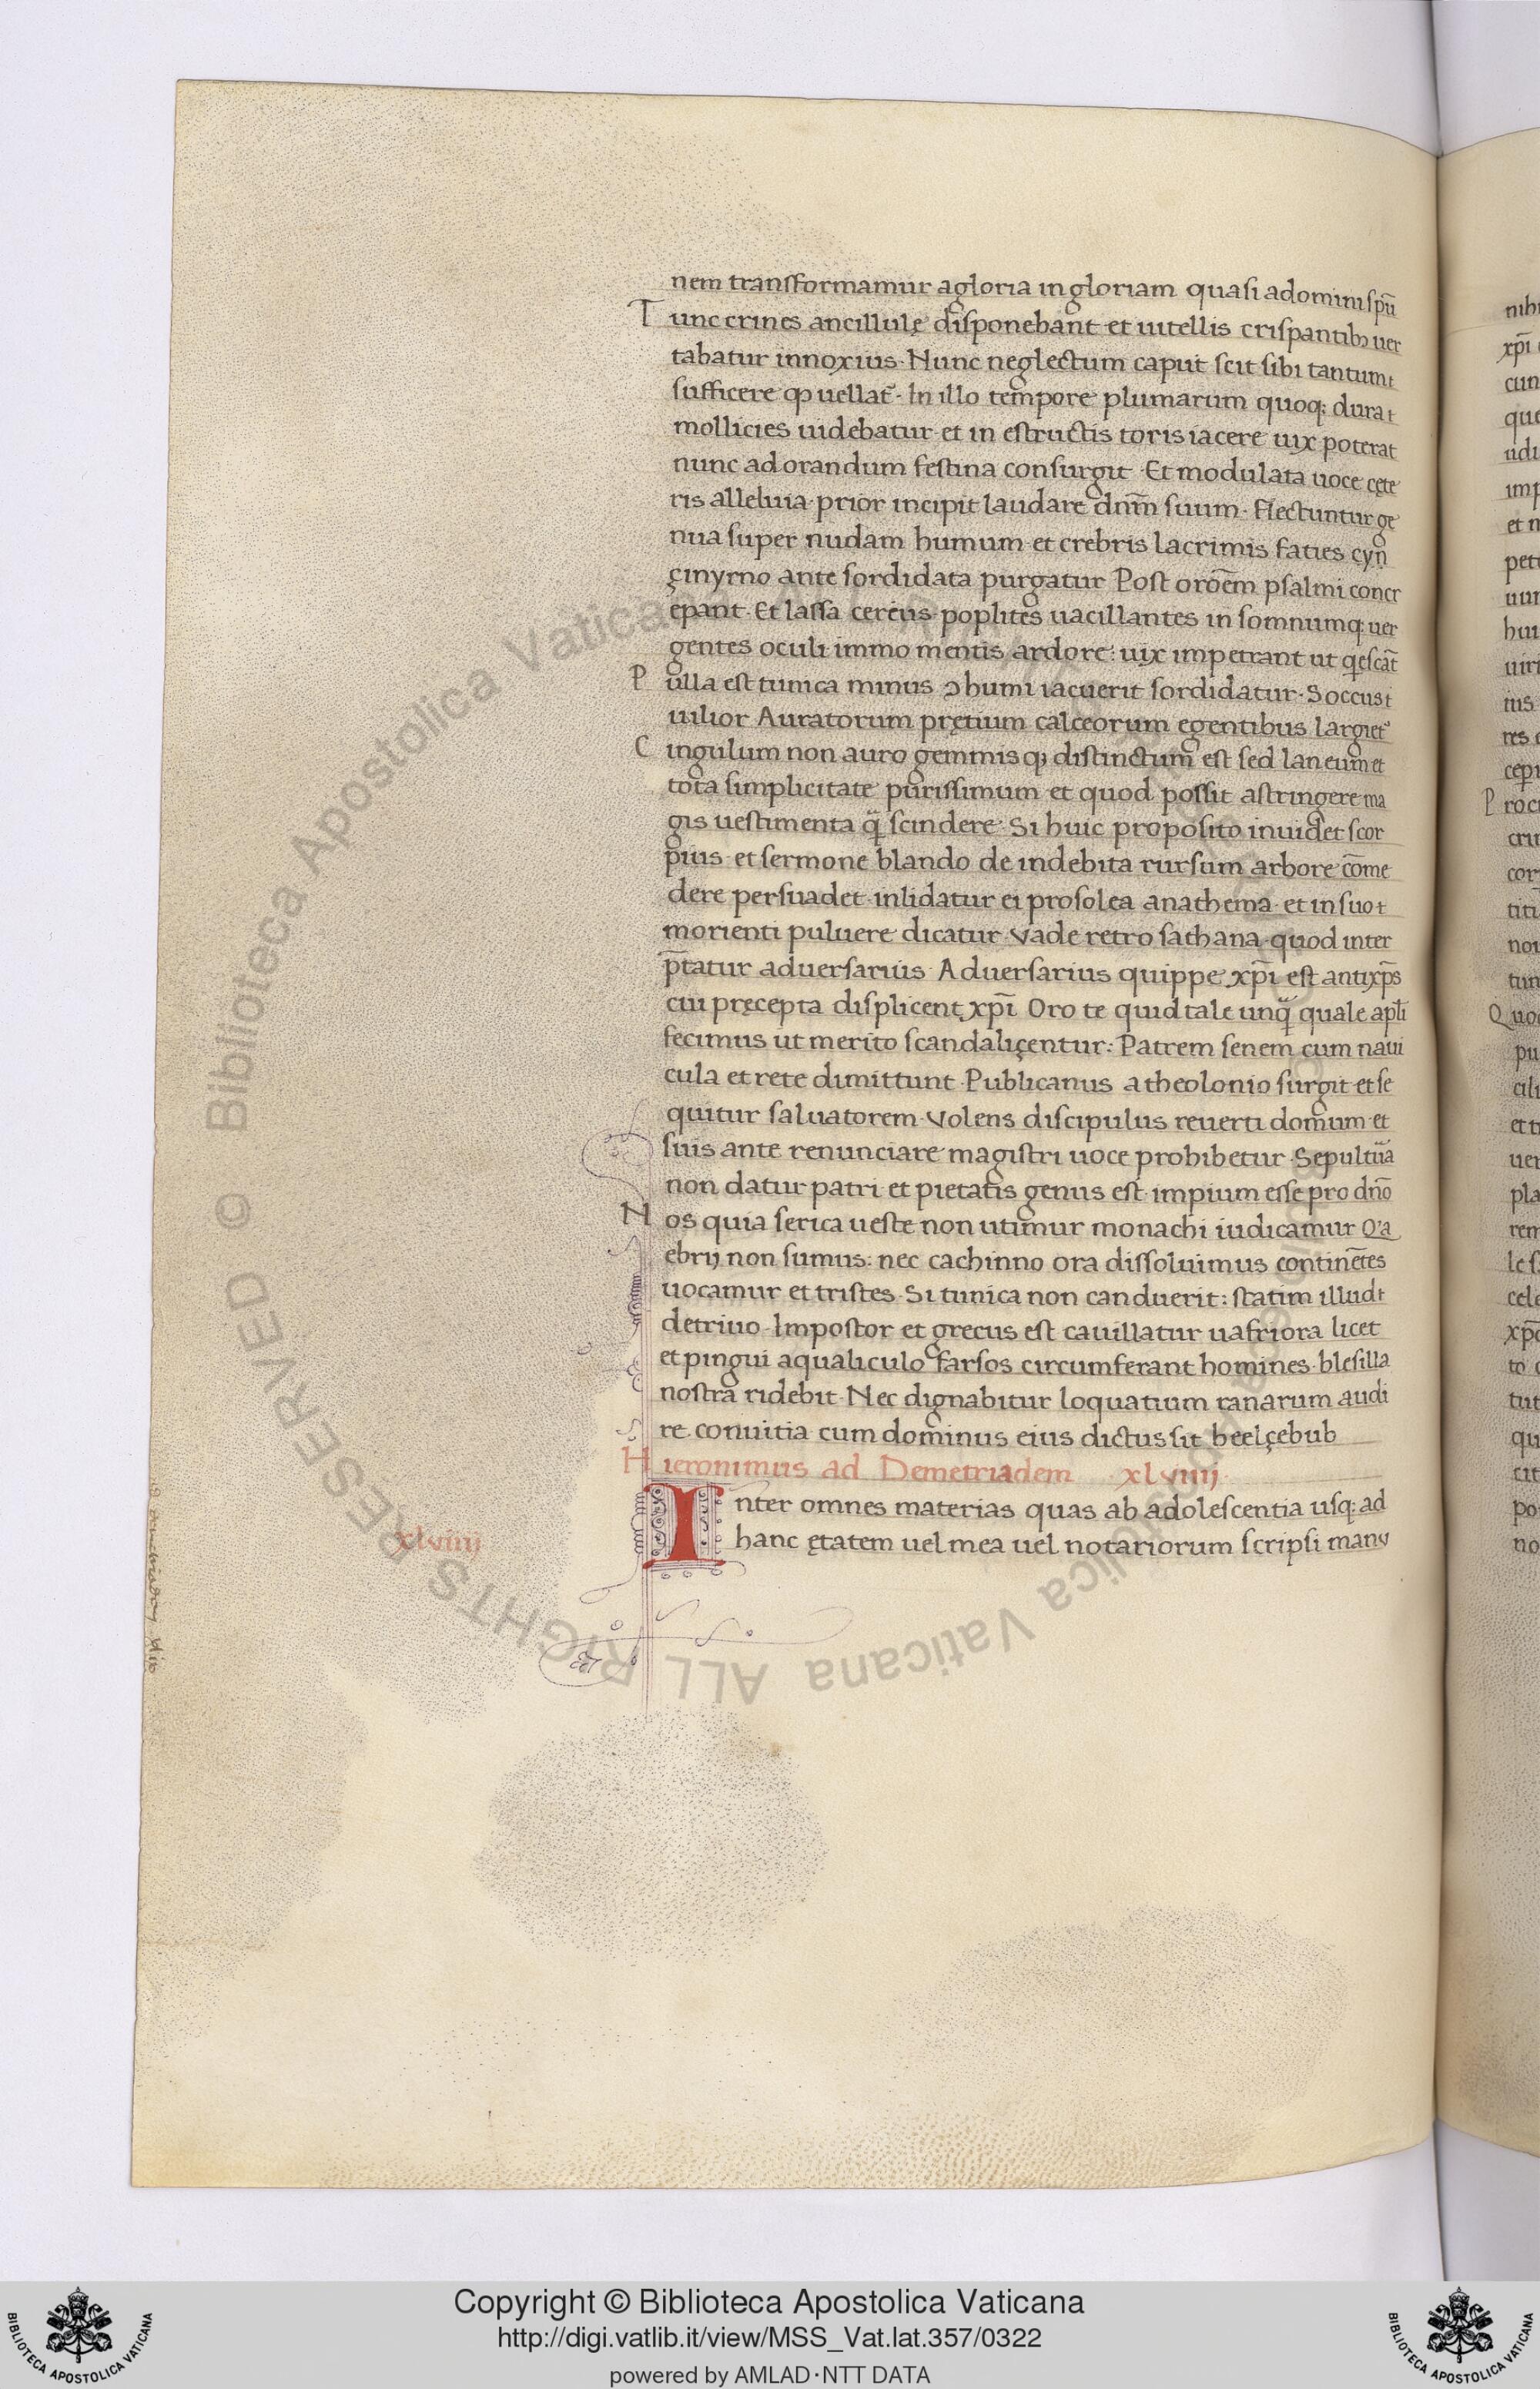 nem transformamur agloria in gloriam quasi adomini spū
Tunc crines ancillulę disponebant et uitellis crispantibꝫ uer
tabatur innoxius. Nunc neglectum caput scit sibi tantum
sufficere ꝙ uellat̄. In illo tempore plumarum quoq; dura
mollicies uidebatur et in estructis toris iacere uix poterat
nunc ad orandum festina consurgit. Et modulata uoce cęte
ris alleluia prior incipit laudare dn̄m suum. Flectuntur ge
nua super nudam humum et crebris lacrimis faties cyn̄
çinyrno ante sordidata purgatur Post oroēm psalmi concr
epant. Et lassa ceruus poplites uacillantes in somnumq; uer
gentes oculi immo mentis ardore: uix impetrant ut q̄escāt
Pulla est tunica minus ↄ humi iacuerit sordidatur. Soccus
uilior Auratorum prętium calceorum egentibus largiet̄
Cingulum non auro gemmisqꝫ distinctum est sed laneum et
tota simplicitate purissimum et quod possit astringere ma
gis uestimenta q̄ scindere. Si huic proposito inuidet scor
pius et sermone blando de indebita rursum arbore cōme
dere persuadet inlidatur ei pro solea anathema et in suo
morienti puluere dicatur Vade retro sathana quod inter
p̄tatur aduersarius. Aduersarius quippe xp̄i est antixp̄s
cui pręcepta displicent xp̄i Oro te quid tale unq̄ quale apl̄i
fecimus ut merito scandaliçentur: Patrem senem cum naui
cula et rete dimittunt Publicanus a theolonio surgit et se
quitur saluatorem. Volens discipulus reuerti domum et
suis ante renunciare magistri uoce prohibetur Sepultūa
non datur patri et pietatis genus est impium esse pro dn̄o
Nos quia serica ueste non utimur monachi iudicamur Q'a
ebrij non sumus: nec cachinno ora dissoluimus continētes
uocamur et tristes. Si tunica non canduerit: statim illud
detriuo Impostor et grecus est cauillatur uafriora licet
et pingui aqualiculo farsos circumferant homines blesilla
nostra ridebit. Nec dignabitur loquatium ranarum audi
re conuitia cum dominus eius dictus sit beelçebub
Hieronimus ad Demetriadem xlviiij
Inter omnes materias quas ab adolescentia usq; ad
hanc ętatem uel mea uel notariorum scripsi manu
xlviiij
Copyright © Biblioteca Apostolica Vaticana
http://digi.vatlib.it/view/MSS_Vat.lat.357/0322
powered by AMLAD·NTT DATA
BIBLIOTECA APOSTOLICA VATICANA
BIBLIOTECA APOSTOLICA VATICANA